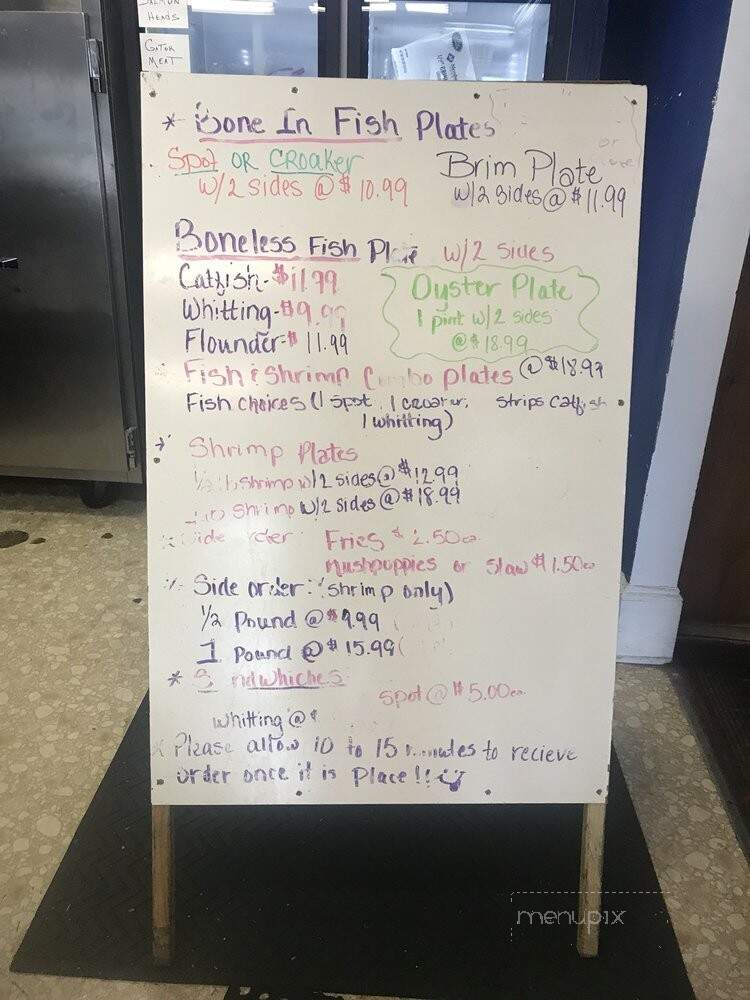 SALMON
HEADS
GATOR
MEAT
* Bone In Fish Plates
Spot OR CROAKER
w/2 sides @ $ 10.99
Brim Plate
w/2 sides @ $11.99
Boneless Fish Plate w/2 sides
Catfish - $11.99
Whitting - $9.99
Flounder - $ 11.99
Oyster Plate
1 pint w/2 sides
@ $18.99
Fish & Shrimp Combo plates @ $18.99
Fish choices (1 spot, 1 croaker, strips catfish
1 whitting)
* Shrimp Plates
1/2 shrimp w/2 sides @ $12.99
shrimp w/2 sides @ $18.99
Side order Fries $ 2.50ea
Hushpuppies or slaw $1.50ea
* Side order: (shrimp only)
1/2 Pound @ $9.99
1 Pound @ $ 15.99
* Sandwhiches
spot @ $5.00ea
whitting @ $
* Please allow 10 to 15 minutes to recieve
order once it is Place!!
menupix